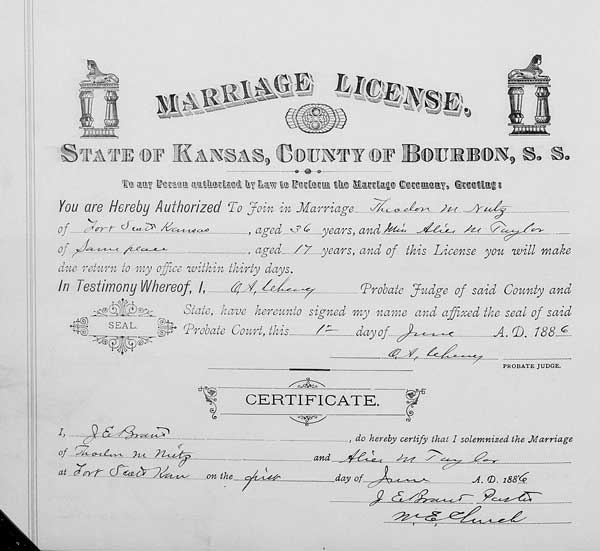 MARRIAGE LICENSE,
STATE OF KANSAS, COUNTY OF BOURBON, S. S.
To any Person authorized by Law to Perform the Marriage Ceremony, Greeting:
You are Hereby Authorized To Join in Marriage Theodon M Nutz
of Fort Scott Kansas, aged 36 years, and Miss Alice M Taylor
of Same place, aged 17 years, and of this License you will make
due return to my office within thirty days.
In Testimony Whereof, I, Probate Judge of said County and
State, have hereunto signed my name and affixed the seal of said
SEAL.
Probate Court, this 1st day of June A. D. 1886
PROBATE JUDGE.
CERTIFICATE.
I, J E Brant, do hereby certify that I solemnized the Marriage
of Theodon M Nutz and Alice M Taylor
at Fort Scott Kan on the first day of June A. D. 1886
J E Brant Pastor
M. E. Church